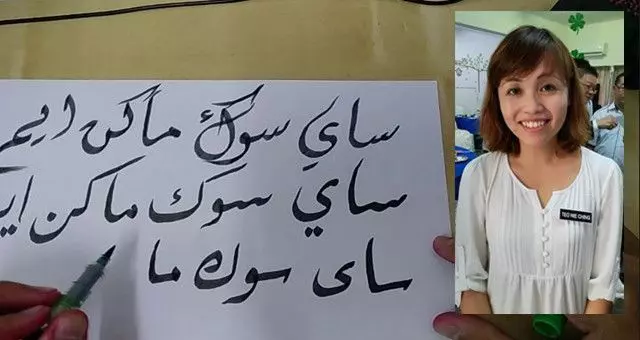 ساي سوك ماكن ايم
ساي سوك ماكن اي
ساى سوك ما
TEO NIE CHING